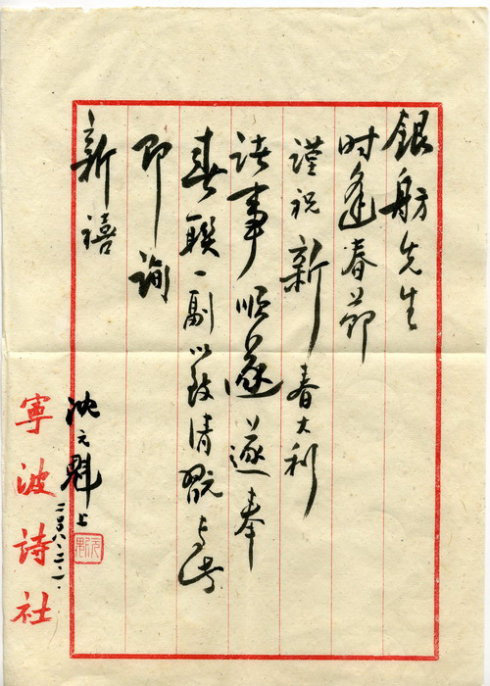 銀舫先生
时逢春节
謹祝新春大利
诸事順遂遂奉
春聯一副以致清翫专此
即询
新禧
沈元魁上
二〇〇八.二.一.
寧波诗社